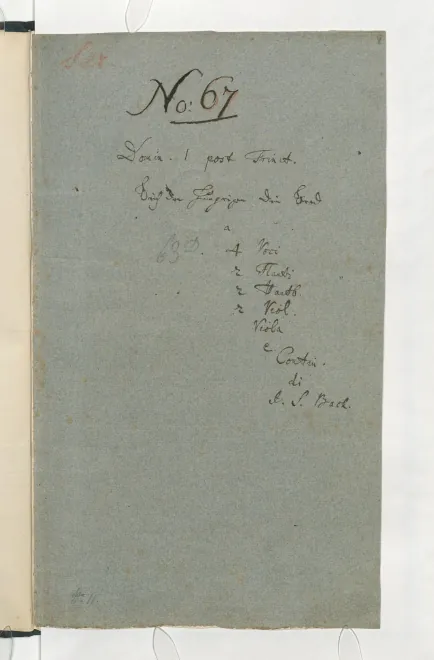 No: 67
Domin. 1 post Trinit.
Brich dem Hungrigen dein Brod
a
4 Voci
2 Flauti
2 Hautb.
2 Viol.
Viola
e
Contin.
di
J. S. Bach.